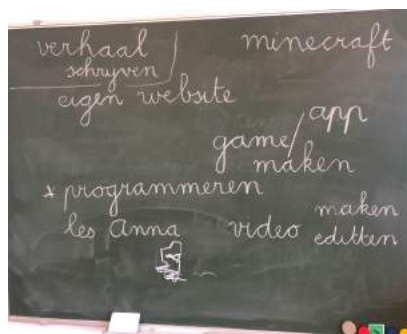 verhaal
schryven
minecraft
eigen website
game/app
maken
* programmeren
les Anna
video maken
editten